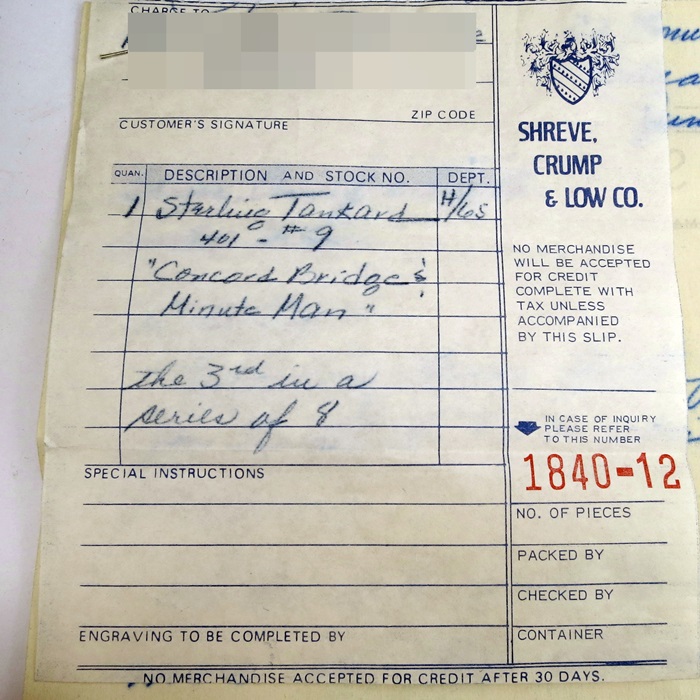 CHARGE TO
ZIP CODE
CUSTOMER'S SIGNATURE
QUAN. DESCRIPTION AND STOCK NO. DEPT.
1 Sterling Tankard H/65
401 - #9
"Concord Bridge &
Minute Man"
the 3rd in a
series of 8
SPECIAL INSTRUCTIONS
ENGRAVING TO BE COMPLETED BY
SHREVE,
CRUMP
& LOW CO.
NO MERCHANDISE
WILL BE ACCEPTED
FOR CREDIT
COMPLETE WITH
TAX UNLESS
ACCOMPANIED
BY THIS SLIP.
IN CASE OF INQUIRY
PLEASE REFER
TO THIS NUMBER
1840-12
NO. OF PIECES
PACKED BY
CHECKED BY
CONTAINER
NO MERCHANDISE ACCEPTED FOR CREDIT AFTER 30 DAYS.